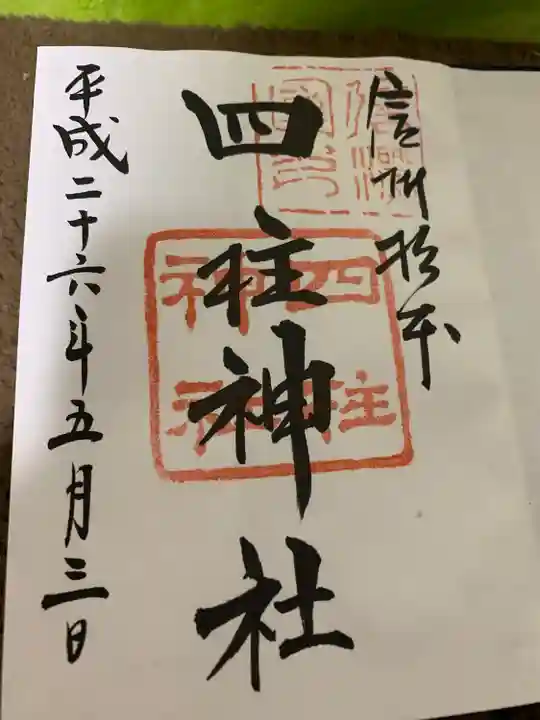 信州松本
四柱神社
四柱
神社
平成二十六年五月三日